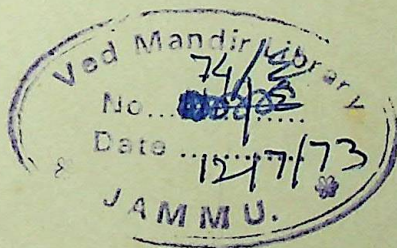 Ved Mandir Library
No...
Date ........ 12/7/73
JAMMU.